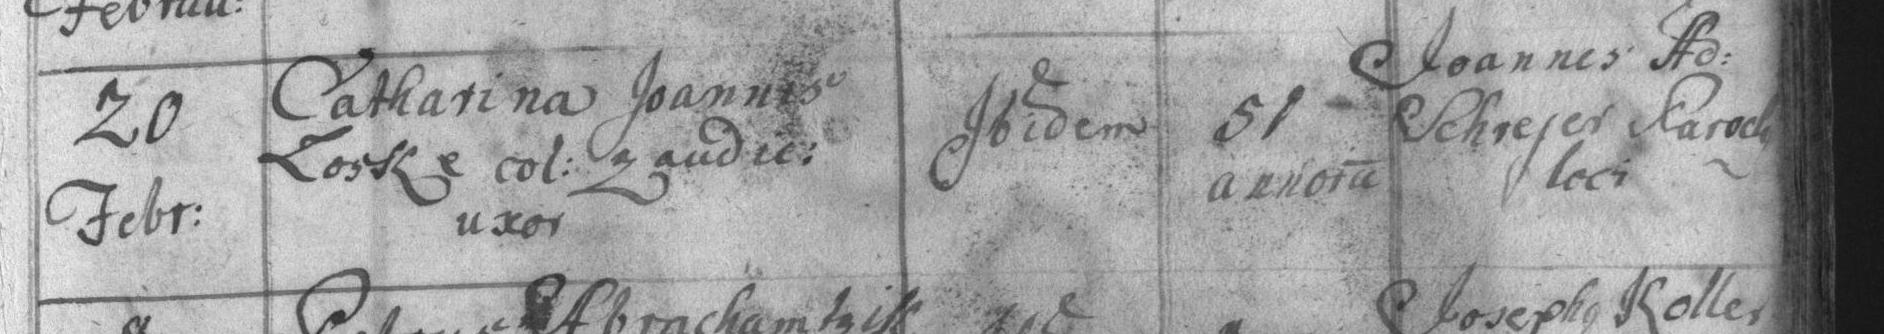 Februa:
20
Febr:
Catharina Joannis
Loske col: Zaudic:
uxor
Ibidem
51
annorū
Joannes Ad:
Schrejer Paroch
loci
Abrachamtzik
Josephq Koller